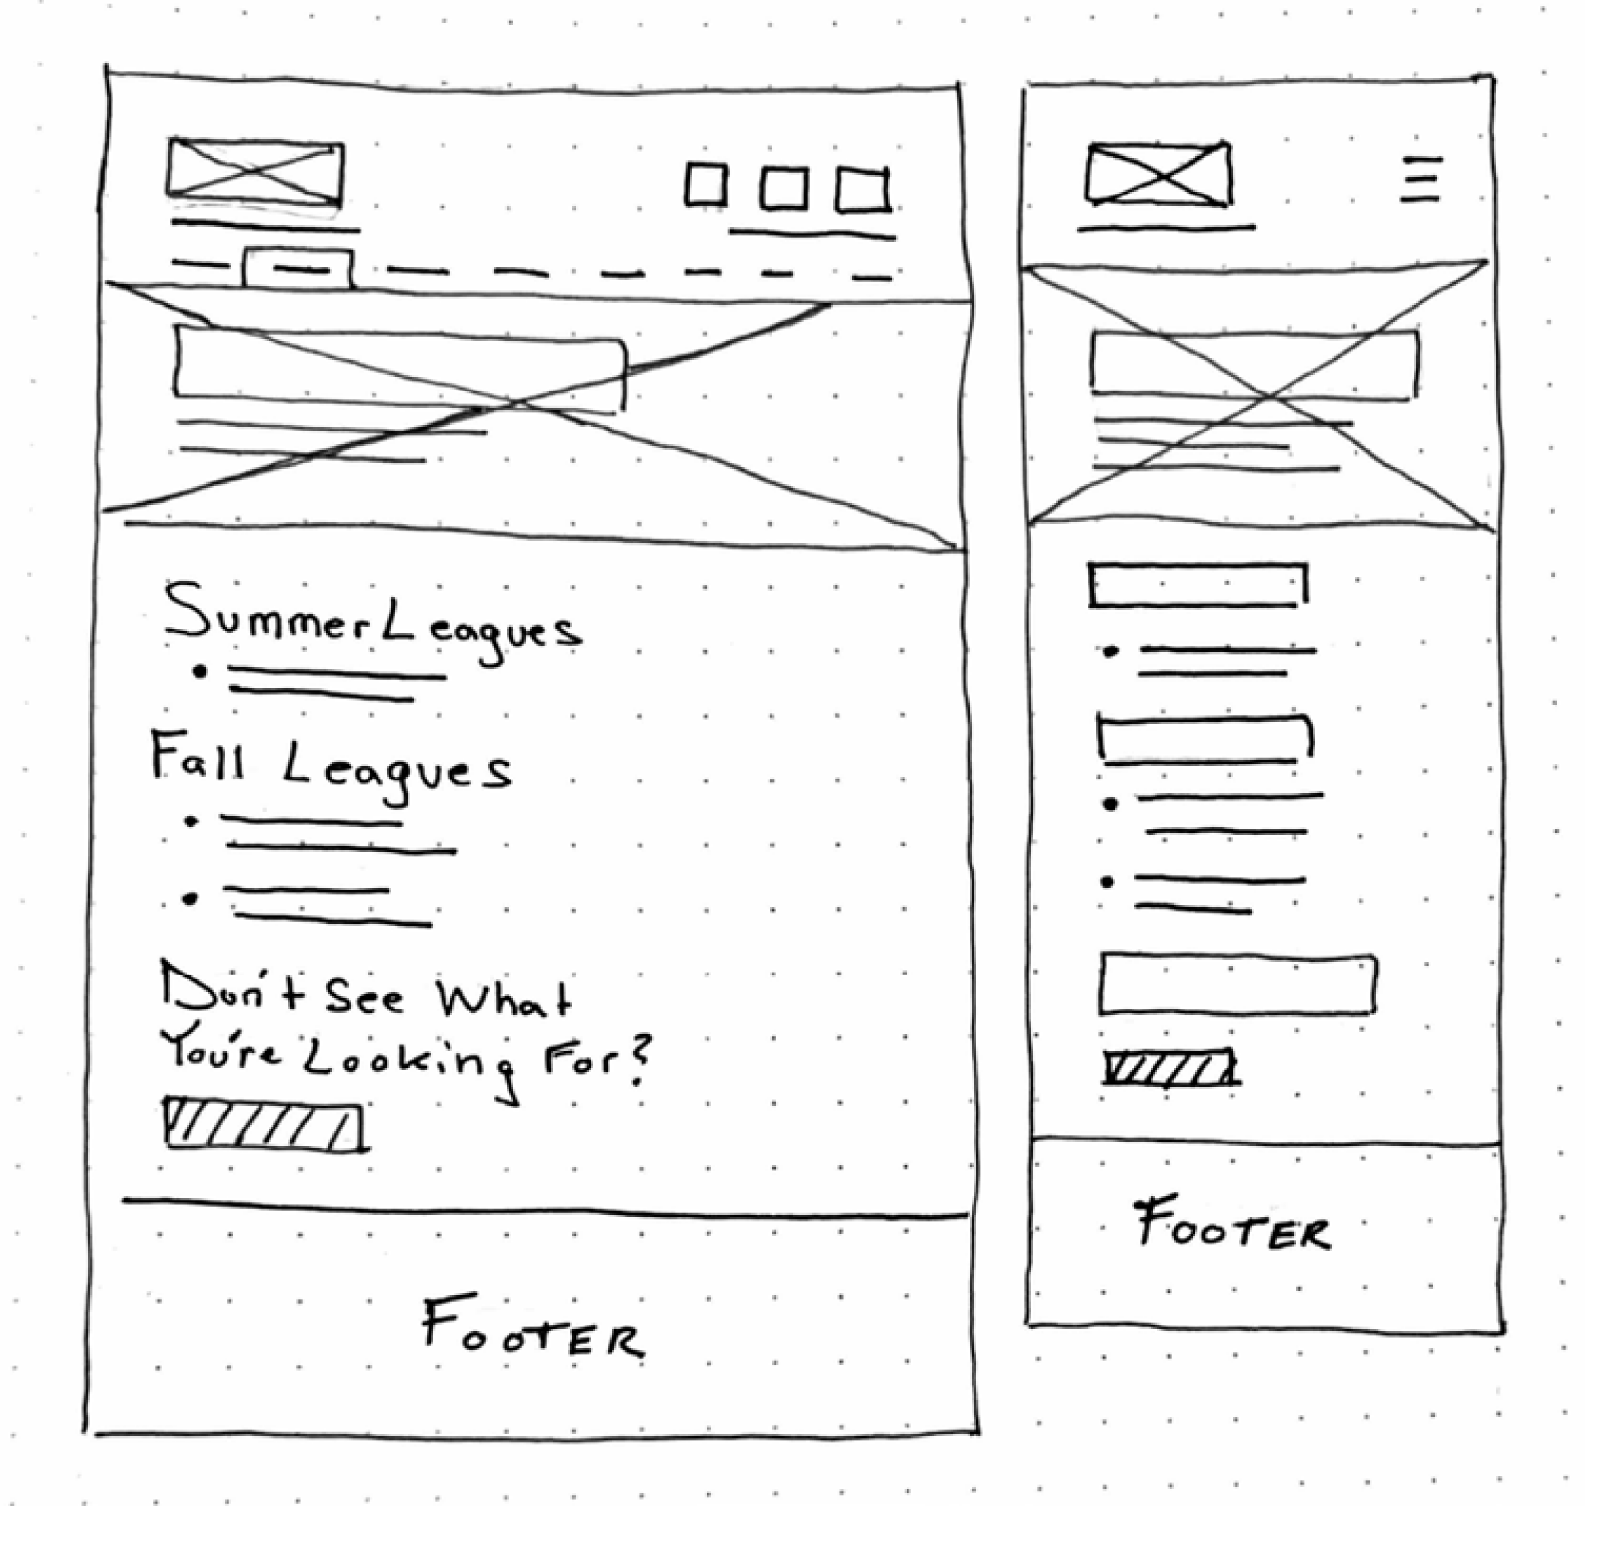 Summer Leagues
Fall Leagues
Don't See What
You're Looking For?
Footer
Footer